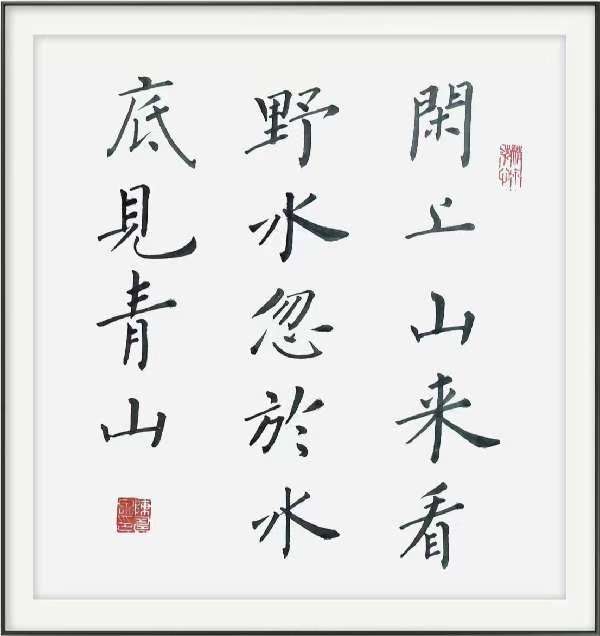 閑上山来看
野水忽於水
底見青山